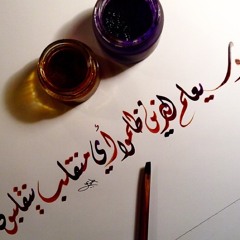 و سيعلم الذين ظلموا أي منقلب ينقلبون